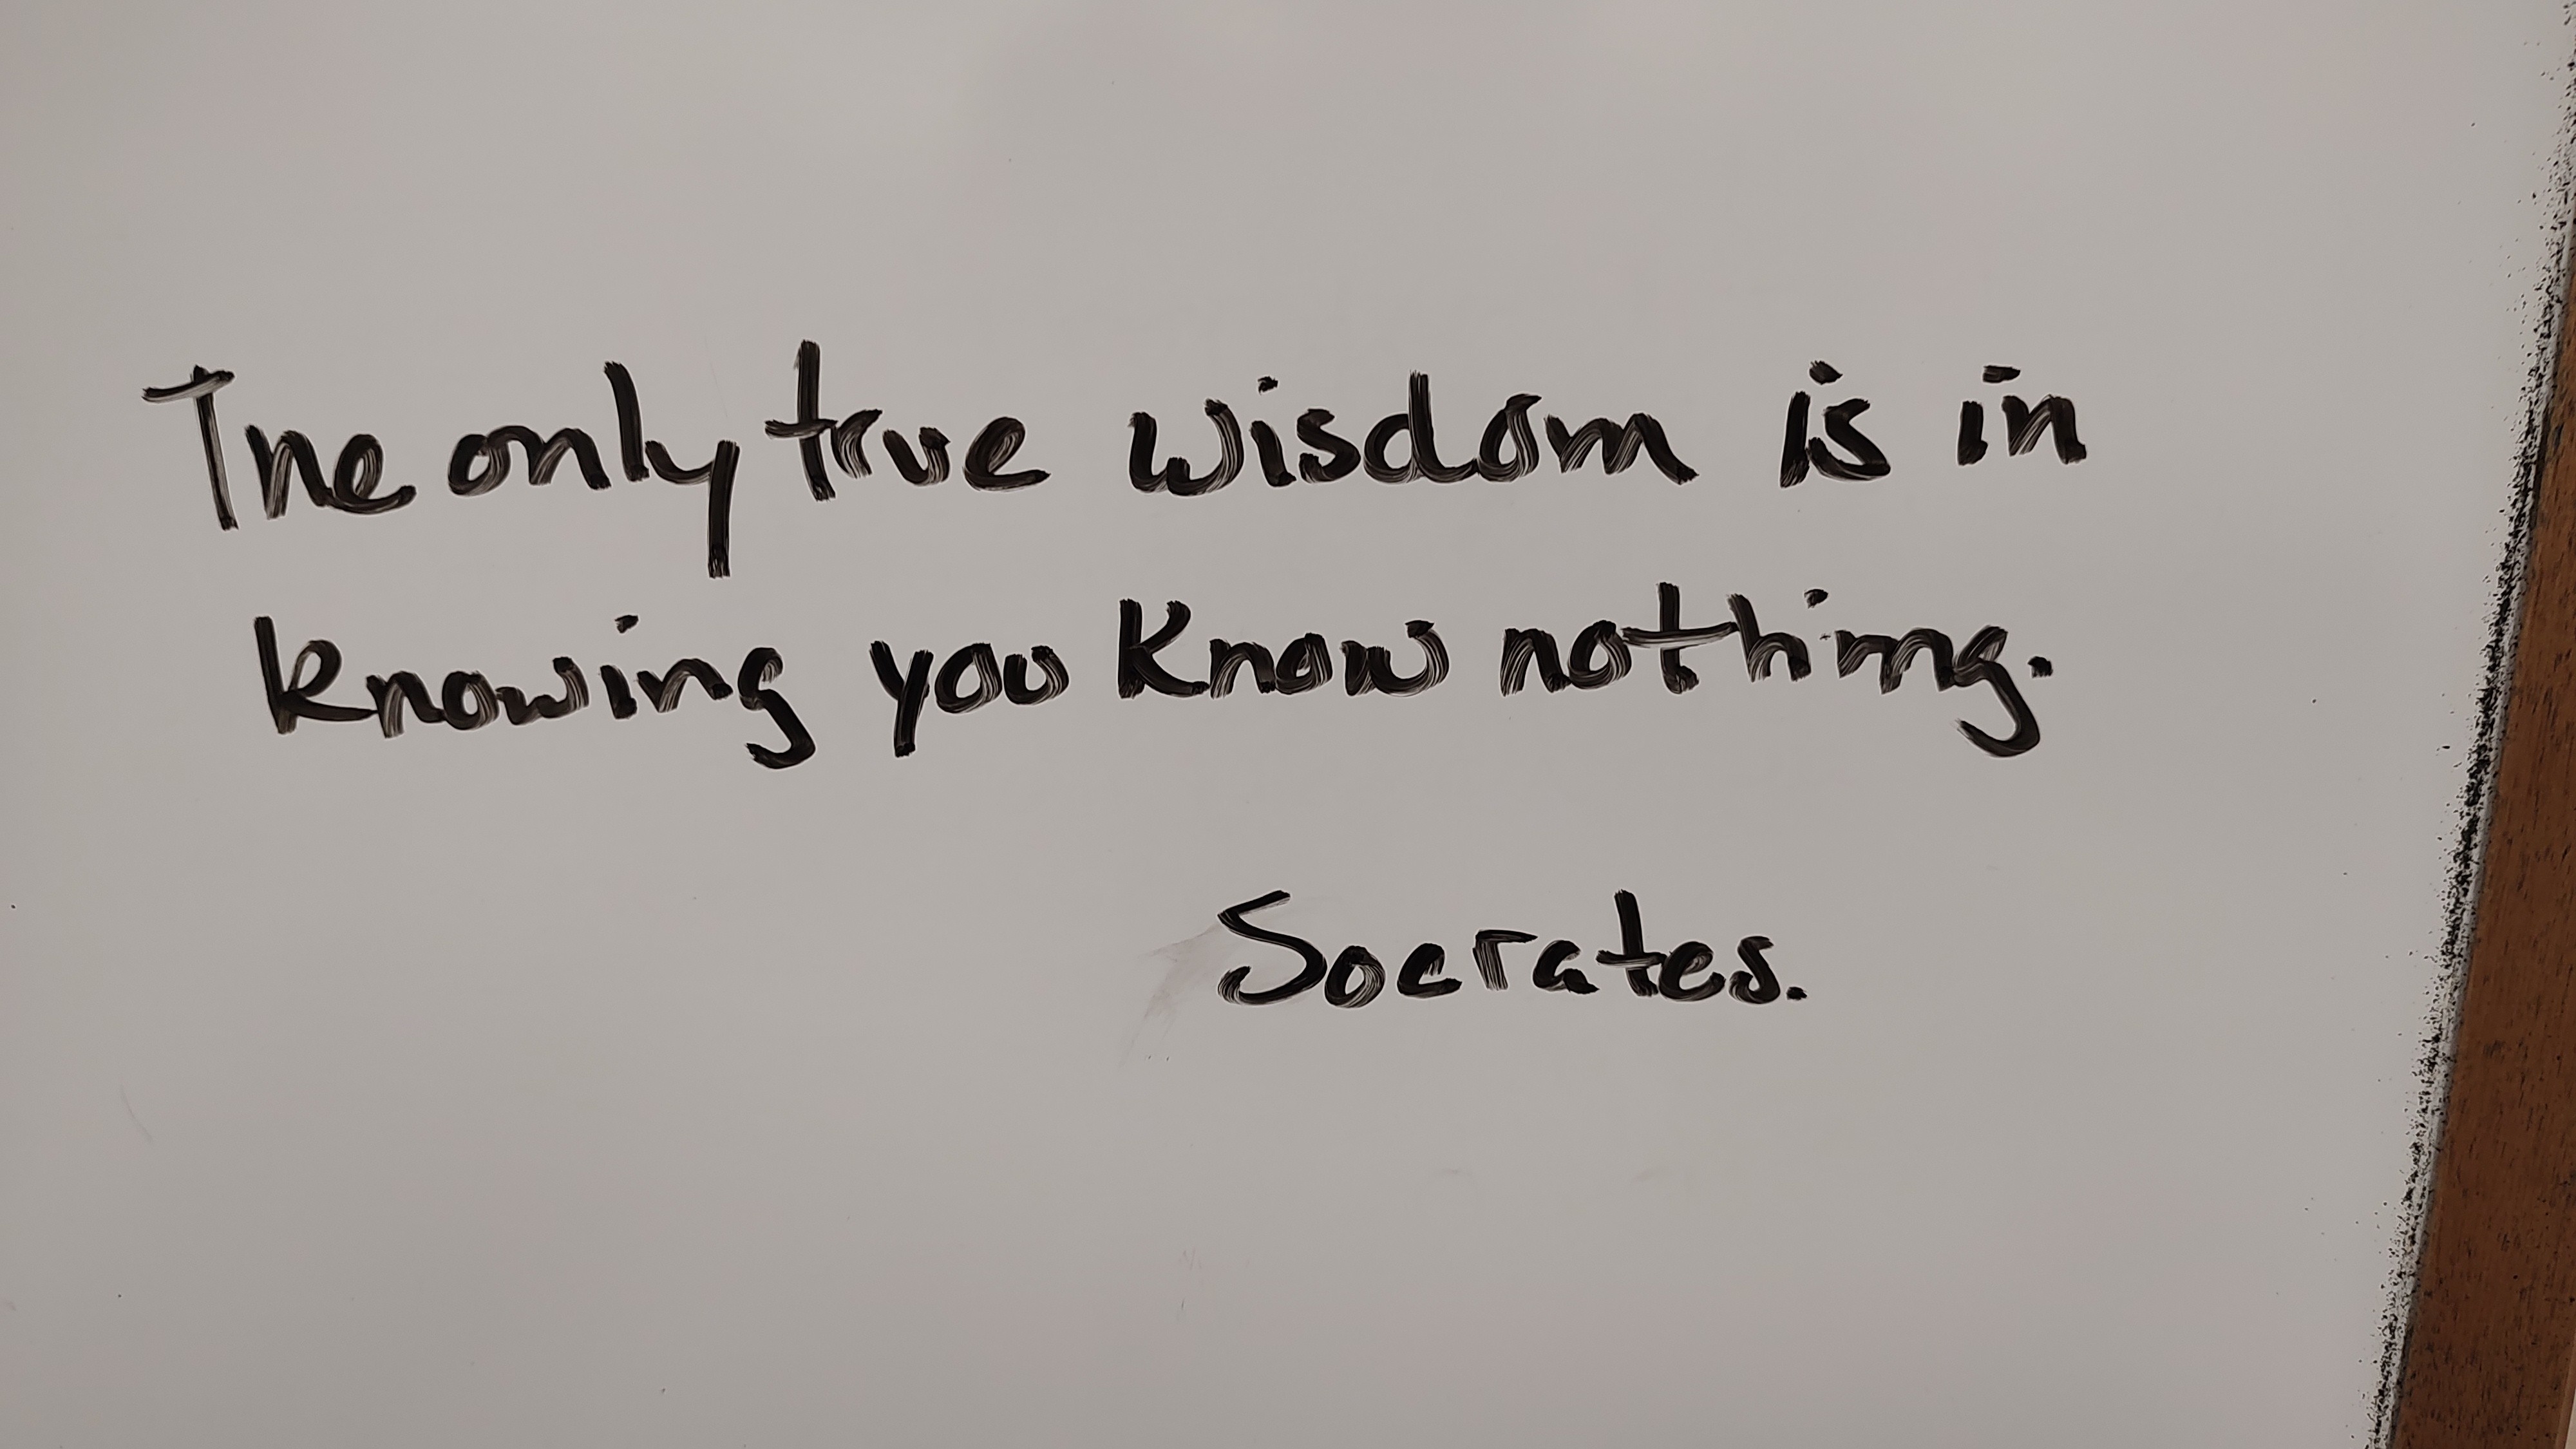 The only true wisdom is in
knowing you know nothing.
Socrates.